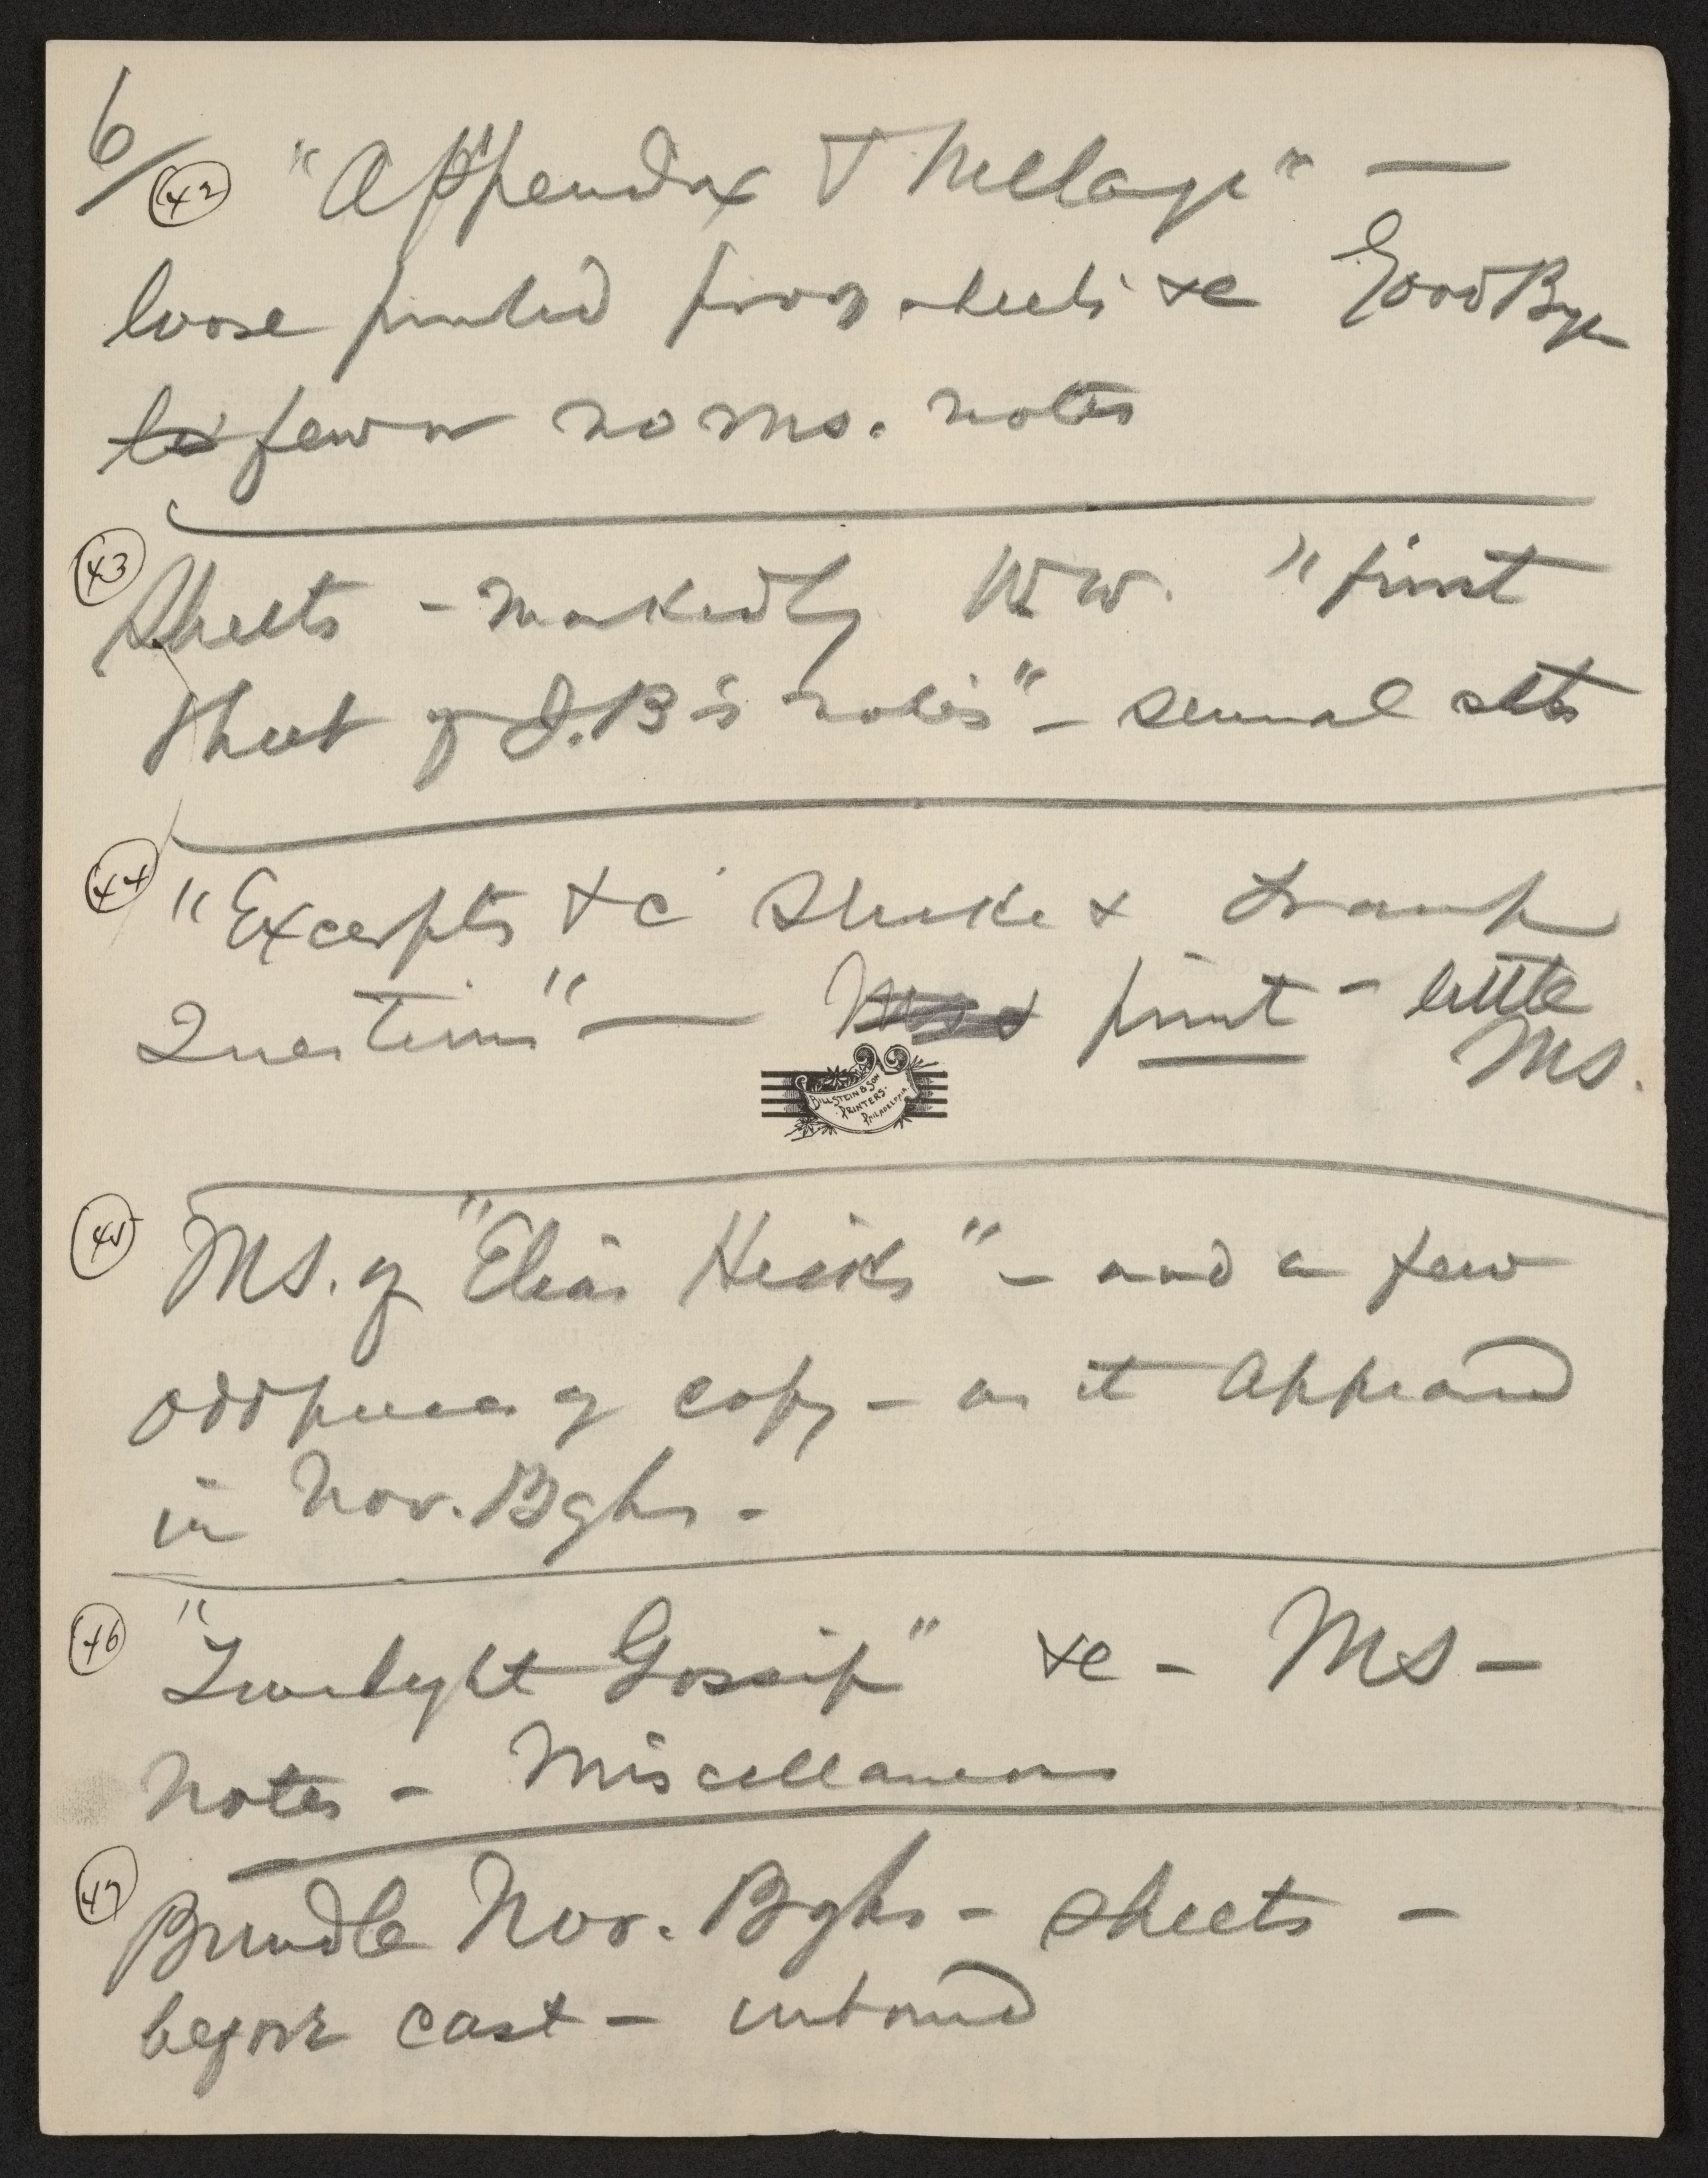 6/
(42) "Appendix & Mellage" —
loose printed proof sheets &c Good Bye
few or no ms. notes
(43)
Sheets - marked by W.W. "first
sheet of J.B's notes" - several sets
(44)
"Excerpts &c Shake & Tramp
Questions" — print - little
Ms.
BILLSTEIN & SON
PRINTERS.
PHILADELPHIA
(45)
MS. of "Elias Hicks" - and a few
odd pieces of copy - as it appeared
in Nov. Bghs -
(46)
"Twilight Gossip" &c - MS -
Notes - Miscellaneous
(47)
Bundle Nov. Bghs - sheets -
before cast - unbound